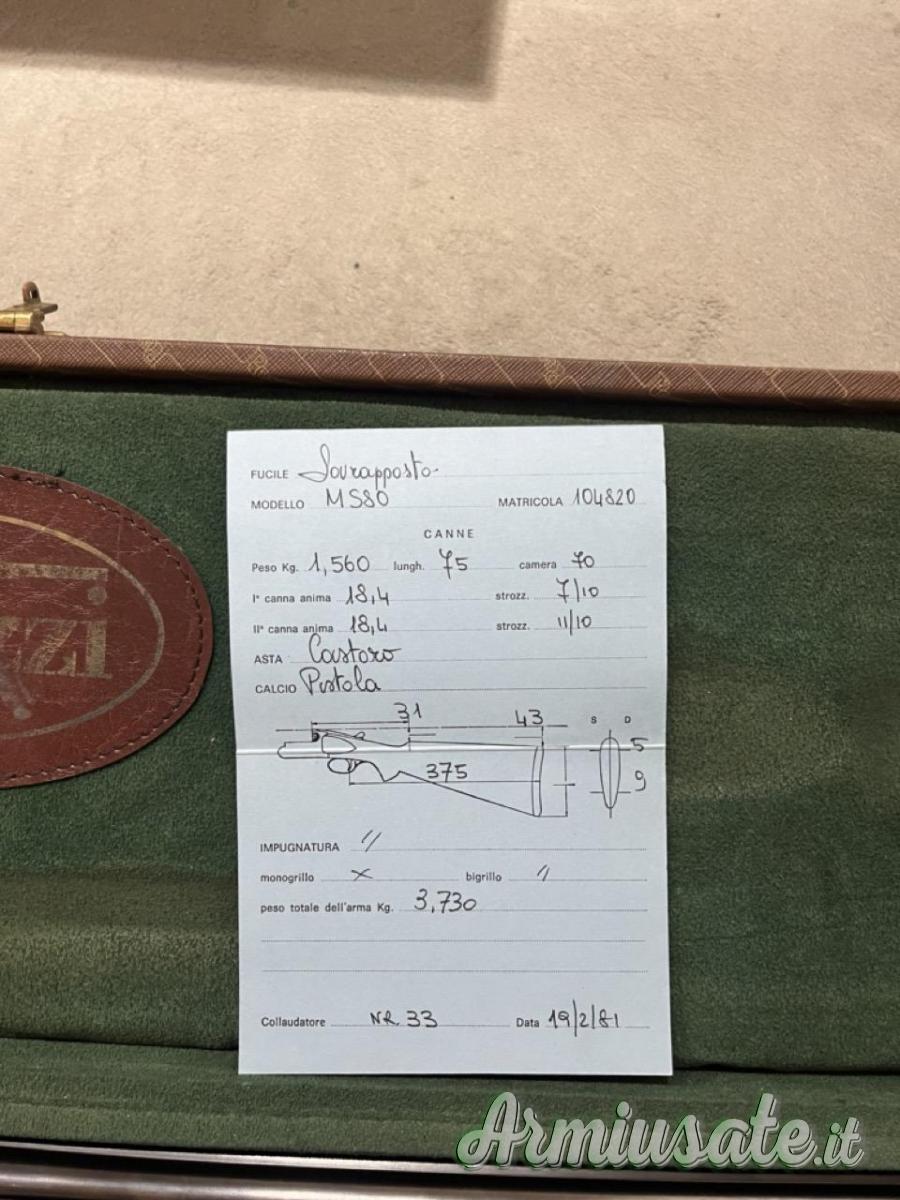 FUCILE Sovrapposto
MODELLO MS80 MATRICOLA 104820
CANNE
Peso Kg. 1,560 lungh. 75 camera 70
Iª canna anima 18,4 strozz. 7/10
IIª canna anima 18,4 strozz. 11/10
ASTA Castoro
CALCIO Pistola
31
43 S D
5
375 9
IMPUGNATURA //
monogrillo X bigrillo //
peso totale dell'arma Kg. 3,730
Collaudatore NR. 33 Data 19/2/81
Armiusate.it